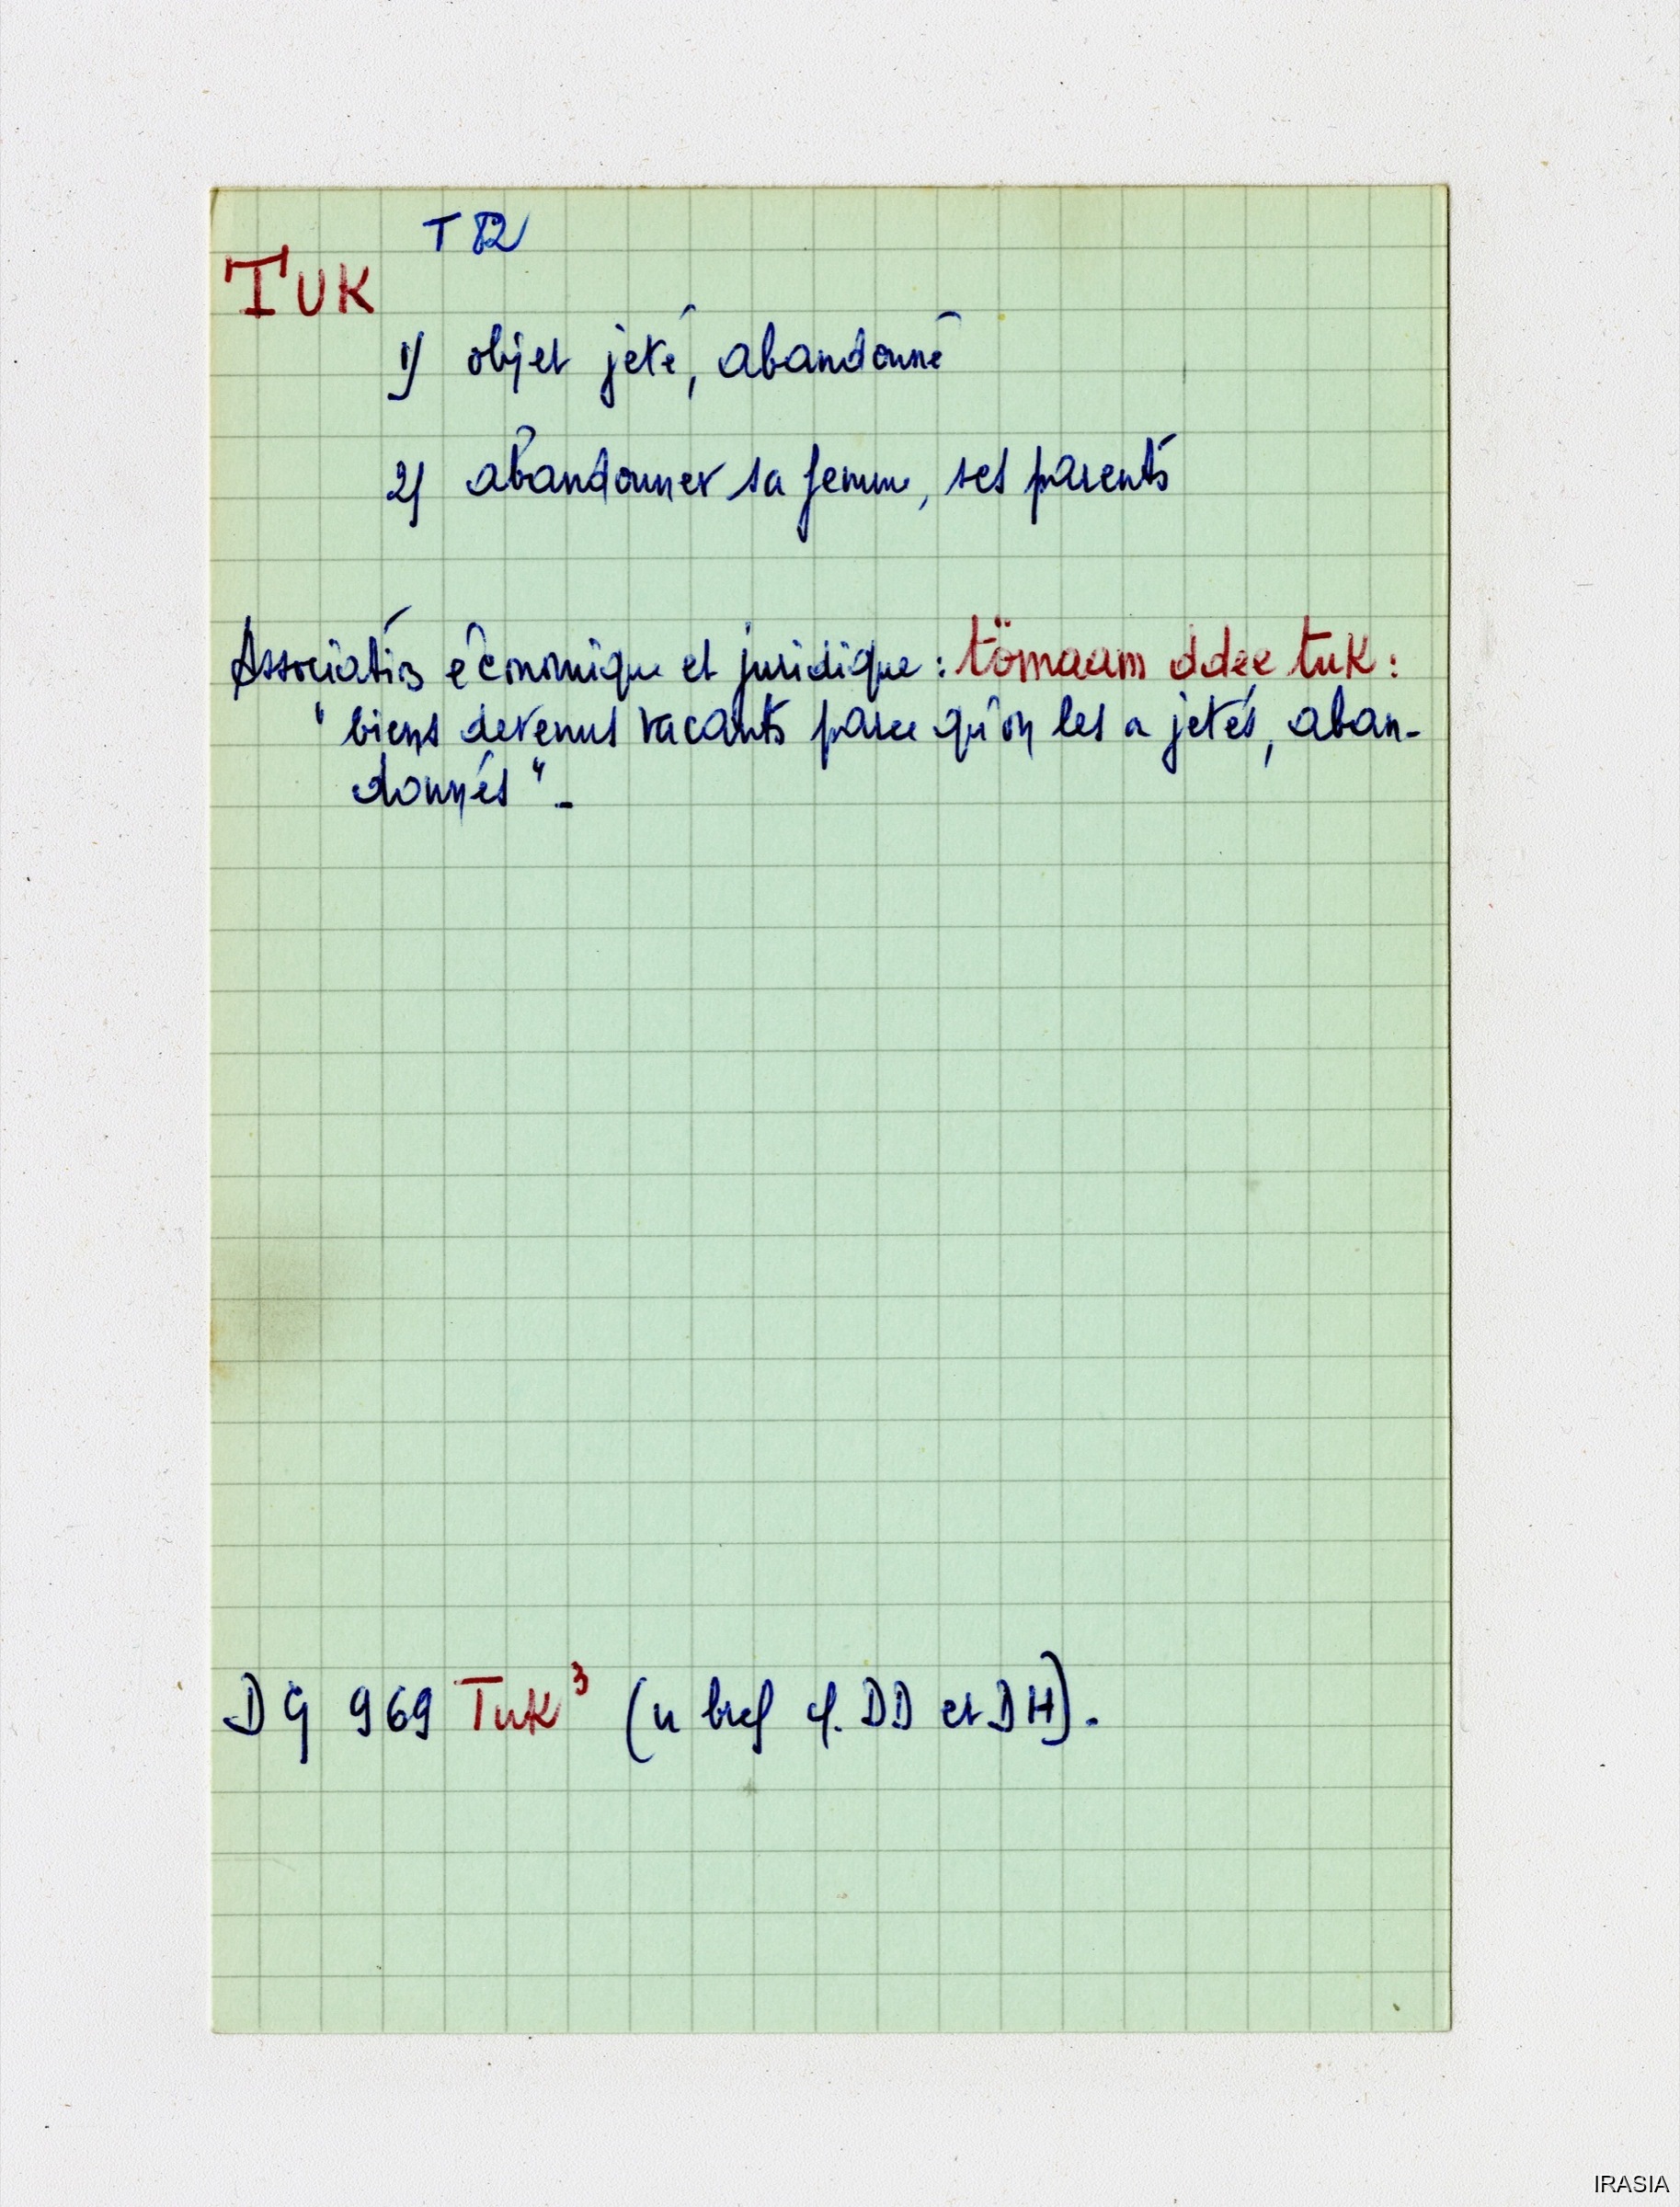 T 82
TUK
1) objet jeté, abandonné
2) abandonner sa femme, ses parents
Association économique et juridique : tömaam ddee tuk :
" biens devenus vacants parce qu'on les a jetés, aban-
donnés " -
DG 969 Tuk³ (u bref cf. DD et DH).
IRASIA